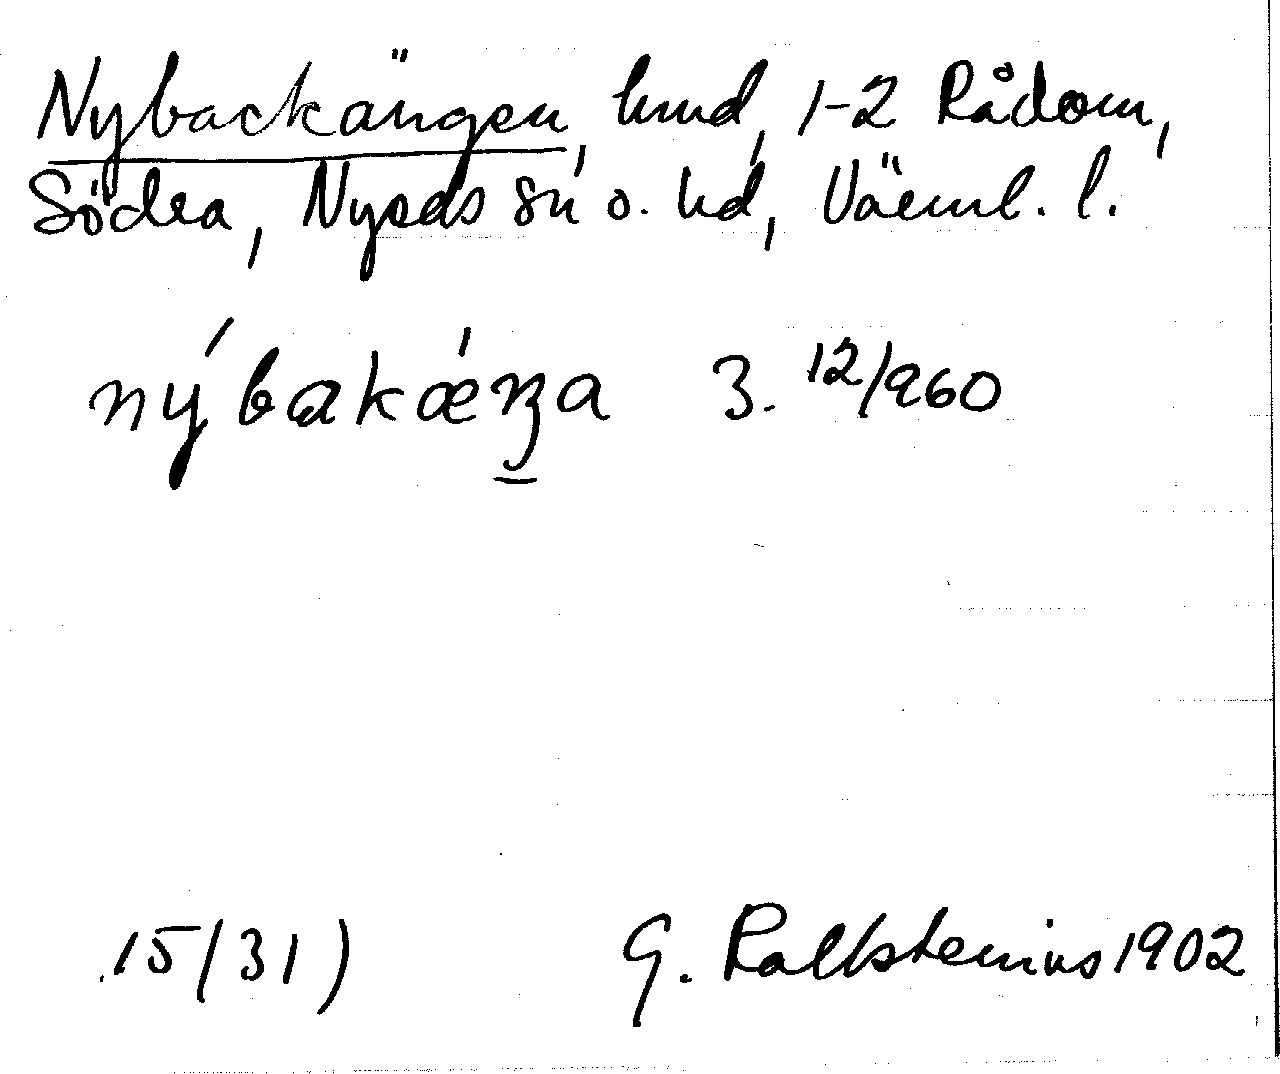 Nybackängen, hmd, 1-2 Rådom,
Södra, Nyeds sn o. hd, Värml. l.
nýbakǽŋa 3. 12/960
15/31) G. Kallstenius 1902